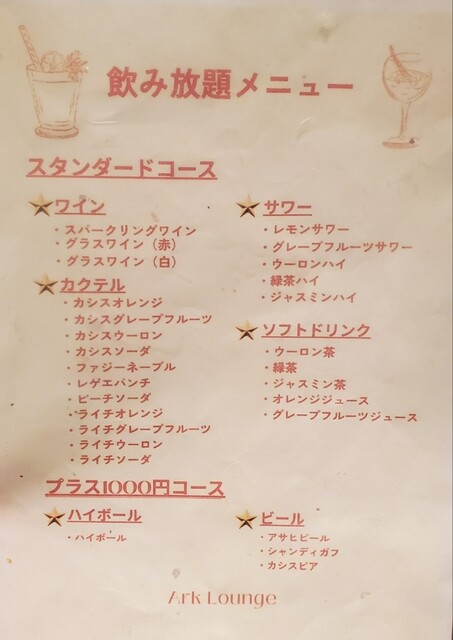 飲み放題メニュー
スタンダードコース
ワイン
・スパークリングワイン
・グラスワイン（赤）
・グラスワイン（白）
カクテル
・カシスオレンジ
・カシスグレープフルーツ
・カシスウーロン
・カシスソーダ
・ファジーネーブル
・レゲエパンチ
・ピーチソーダ
・ライチオレンジ
・ライチグレープフルーツ
・ライチウーロン
・ライチソーダ
サワー
・レモンサワー
・グレープフルーツサワー
・ウーロンハイ
・緑茶ハイ
・ジャスミンハイ
ソフトドリンク
・ウーロン茶
・緑茶
・ジャスミン茶
・オレンジジュース
・グレープフルーツジュース
プラス1000円コース
ハイボール
・ハイボール
ビール
・アサヒビール
・シャンディガフ
・カシスビア
Ark Lounge